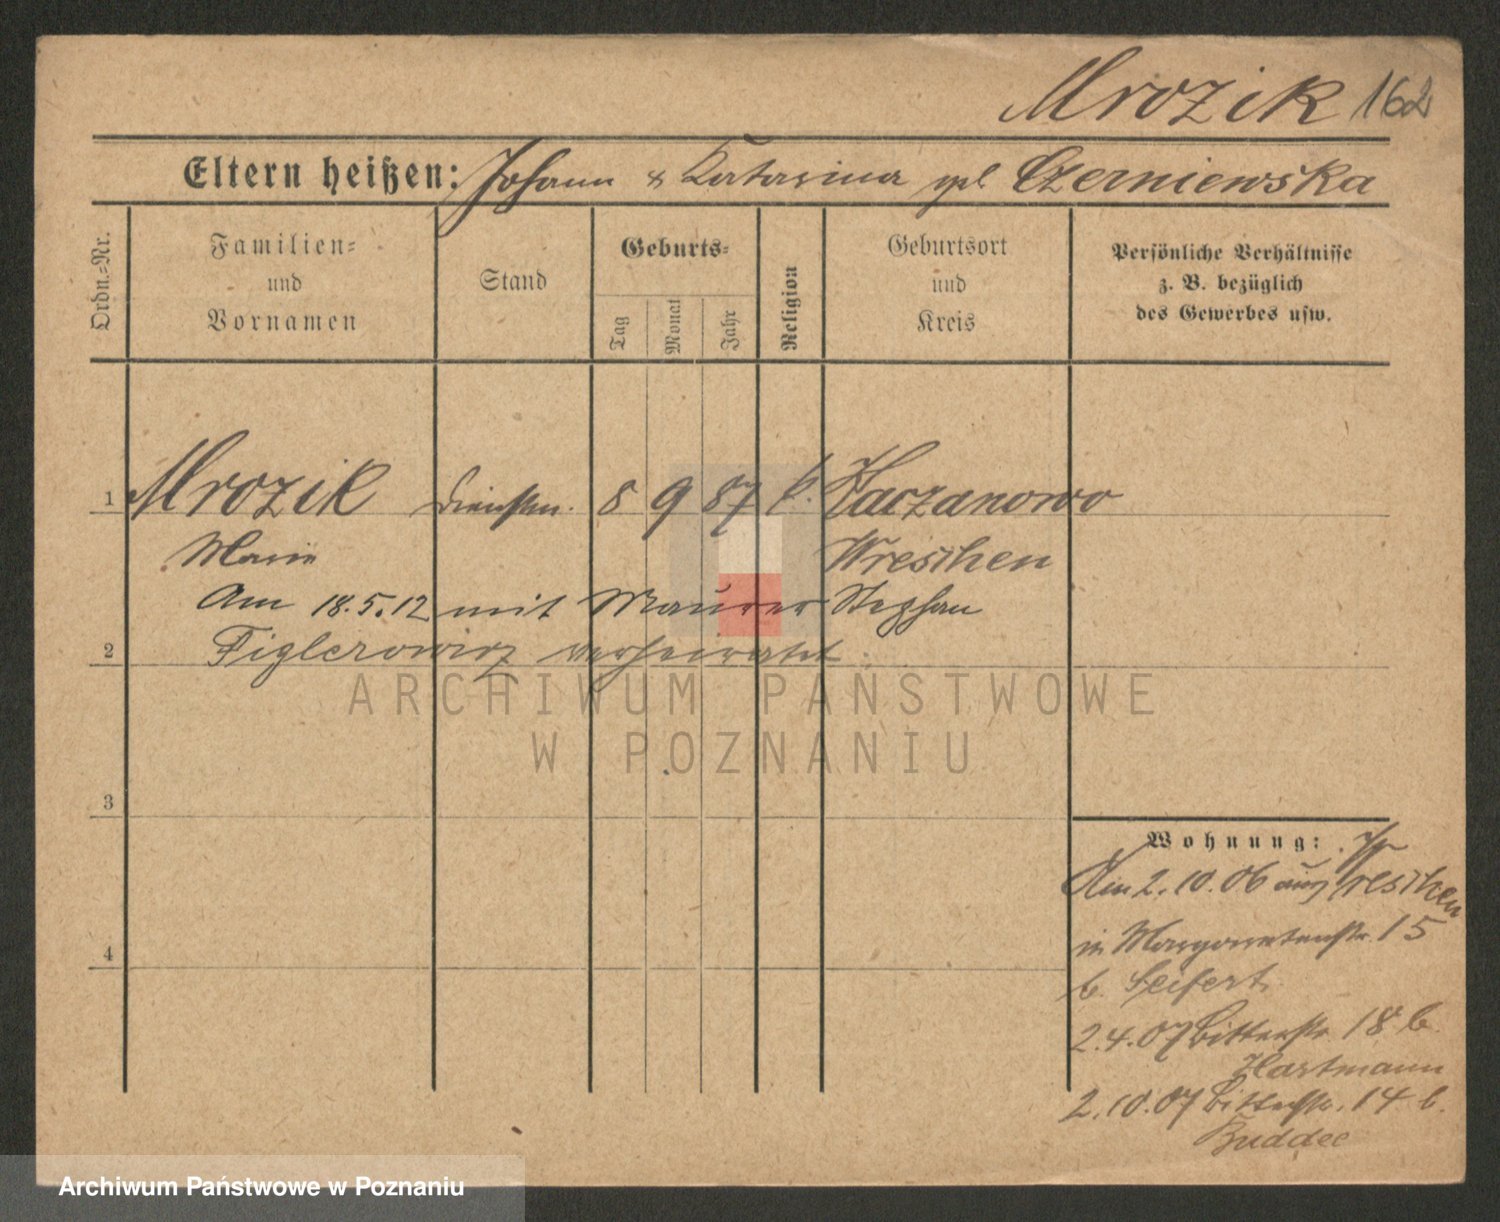 Mrozik 162
Eltern heißen: Johann & Katarina gbl Czerniewska
Ordn.-Nr.
Familien-
und
Vornamen
Stand
Geburts-
Tag
Monat
Jahr
Religion
Geburtsort
und
Kreis
Persönliche Verhältnisse
z. B. bezüglich
des Gewerbes usw.
1 Mrozik Dienstm. 8 9 87 k. Kaczanowo
Marie Wreschen
Am 18.5.12 mit Maurer Stephan
2 Figlerowicz verheiratet
ARCHIWUM PAŃSTWOWE
W POZNANIU
3
4
Wohnung:
2.10.06 aus Wreschen
in Margaretenstr. 15
b. Seifert
2.4.07 Bitterstr. 18 b.
Hartmann
2.10.07 Bitterstr. 14 b.
Buddee
Archiwum Państwowe w Poznaniu